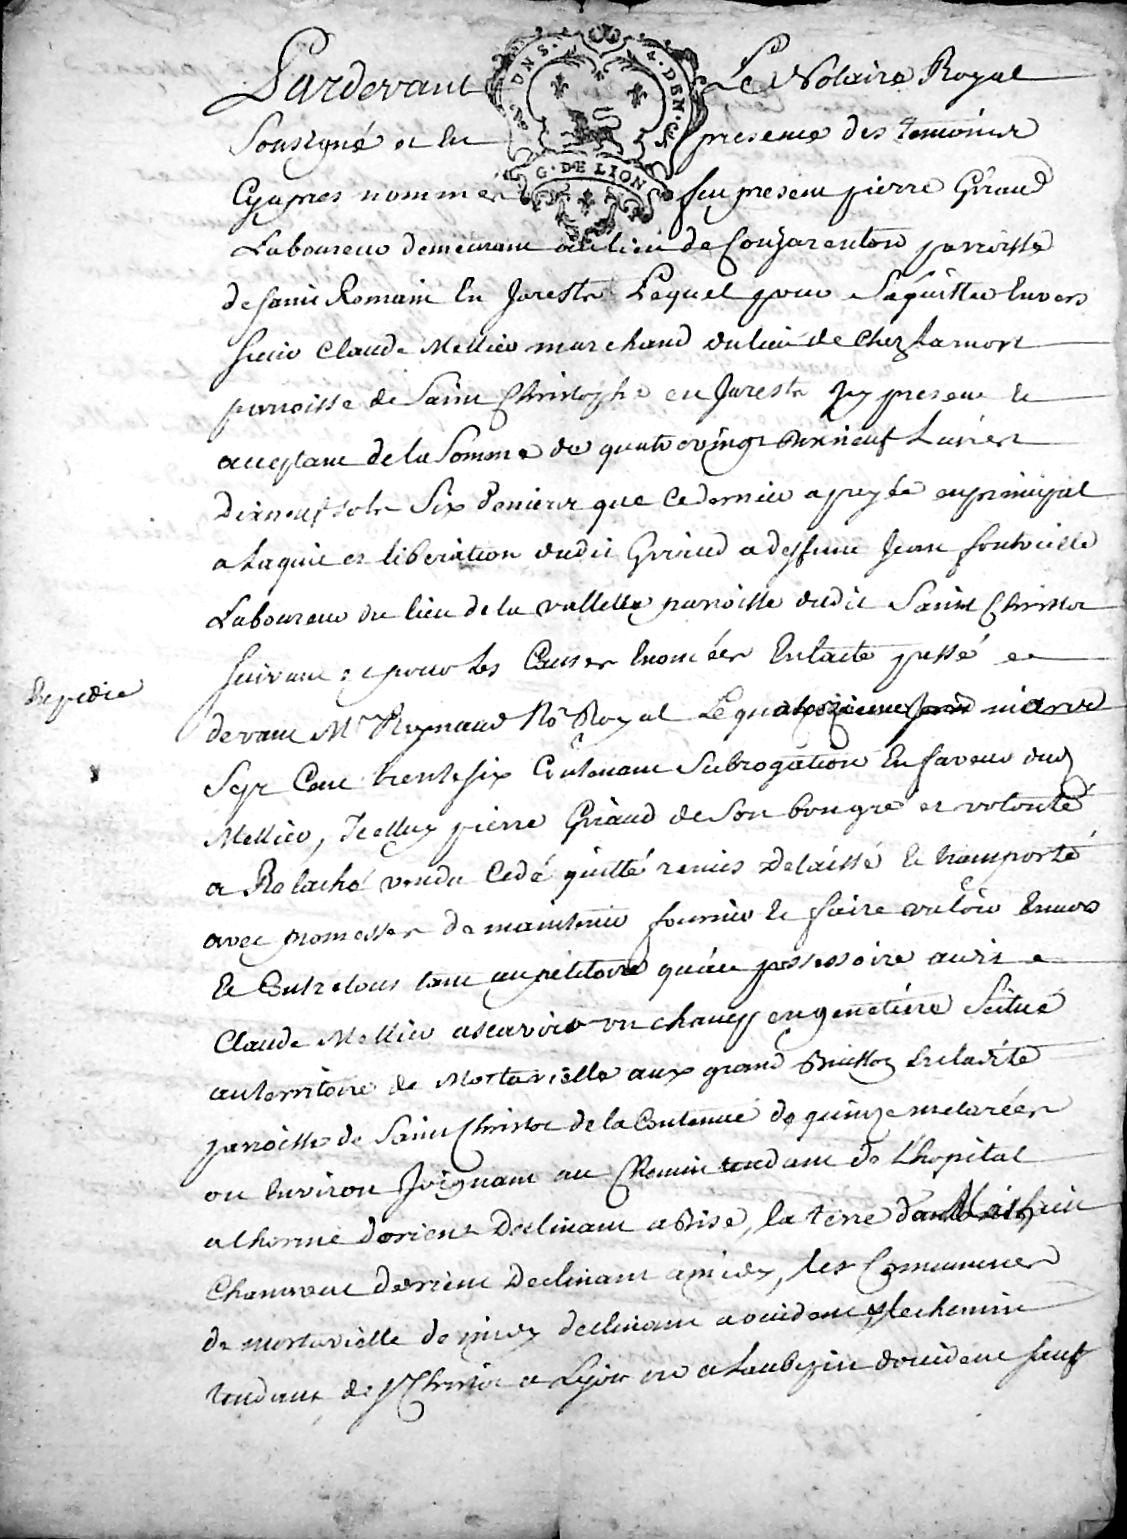 DNS. 4. DEN. G. DE LION
Pardevant Le Notaire Royal
Sousigné et en presence des temoins
Cyapres nommés feu present pierre Giraud
Laboureur demeurant au lieu de Conzarenton parroisse
de saint Romain En Jarestz Lequel pour saquitter Envers
sieur Claude Mellier marchand du lieu de Chez Lamort
parroisse de Saint Christophe en Jarestz Icy present et
acceptant de la Somme de quatrevingt dixneuf Livres
Dixneuf sols Six deniers que cedernier a payée enprincipal
a Laquit et liberation dudit Giraud a deffunt Jean fontvieille
Laboureur du lieu de la vallette parroisse dudit Saint Christoe
suivant et pour les Causes Enoncées En lacte passé
devant Mr Reynaud No.re Royal Le quatorzieme mars
Sept Cent trente six Contenant Subrogation En faveur dud
Mellier, Icelluy pierre Giraud de Son bongré et volonté
a Relaché vendu Cedé quitté remis delaissé et transporté
avec promesses de maintenir fournir et faire valoir Envers
et Contre tous tant au petitoire qu'au possessoire audit
Claude Mellier ascavoir un champ en genetiere Scitué
au territoire de Mortavielle aux grand Buisson En ladite
parroisse de Saint Christoe de la Contenue de quinze meterées
ou Environ Joignant au Chemin tendant de L'hopital
a Lhorme d'orient Declinant a Bise, la terre
d'orient Declinant a midy, les Communes
de mortavielle de midy declinant a occident & le chemin
tendant de St Christoe a Lyon ou a Laubepin d'occident sauf
Expedié